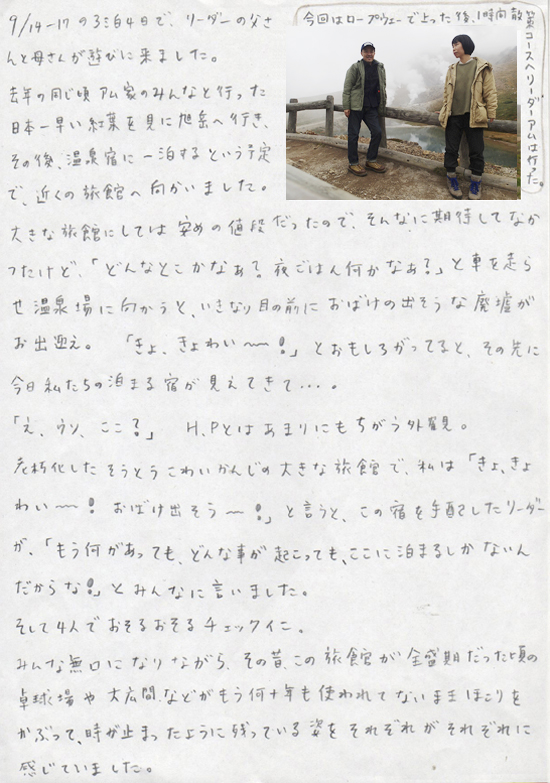 今回はロープウェーで上った後、1時間散策コースへリーダーアムは行った。
9/14-17の3泊4日で、リーダーの父さ
んと母さんが遊びに来ました。
去年の同じ頃アム家のみんなと行った
日本一早い紅葉を見に旭岳へ行き、
その後、温泉宿に一泊するという予定
で、近くの旅館へ向かいました。
大きな旅館にしては安めの値段だったので、そんなに期待してなか
ったけど、「どんなとこかなぁ?夜ごはん何かなぁ?」と車を走ら
せ温泉場に向かうと、いきなり目の前におばけの出そうな廃墟が
お出迎え。 「きょ、きょわい〜〜!」とおもしろがってると、その先に
今日私たちの泊まる宿が見えてきて....。
「え、ウソ、ここ?」 H.Pとはあまりにもちがう外観。
老朽化したそうとうこわいかんじの大きな旅館で、私は「きょ、きょ
わい〜!おばけ出そう〜!」と言うと、この宿を手配したリーダー
が、「もう何があっても、どんな事が起こっても、ここに泊まるしかないん
だからな!」とみんなに言いました。
そして4人でおそるおそるチェックイン。
みんな無口になりながら、その昔、この旅館が全盛期だった頃の
卓球場や大広間などがもう何十年も使われてないままほこりを
かぶって、時が止まったように残っている姿をそれぞれがそれぞれに
感じていました。